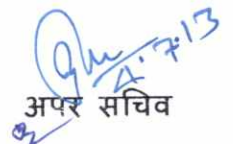 4.7.13
अपर सचिव